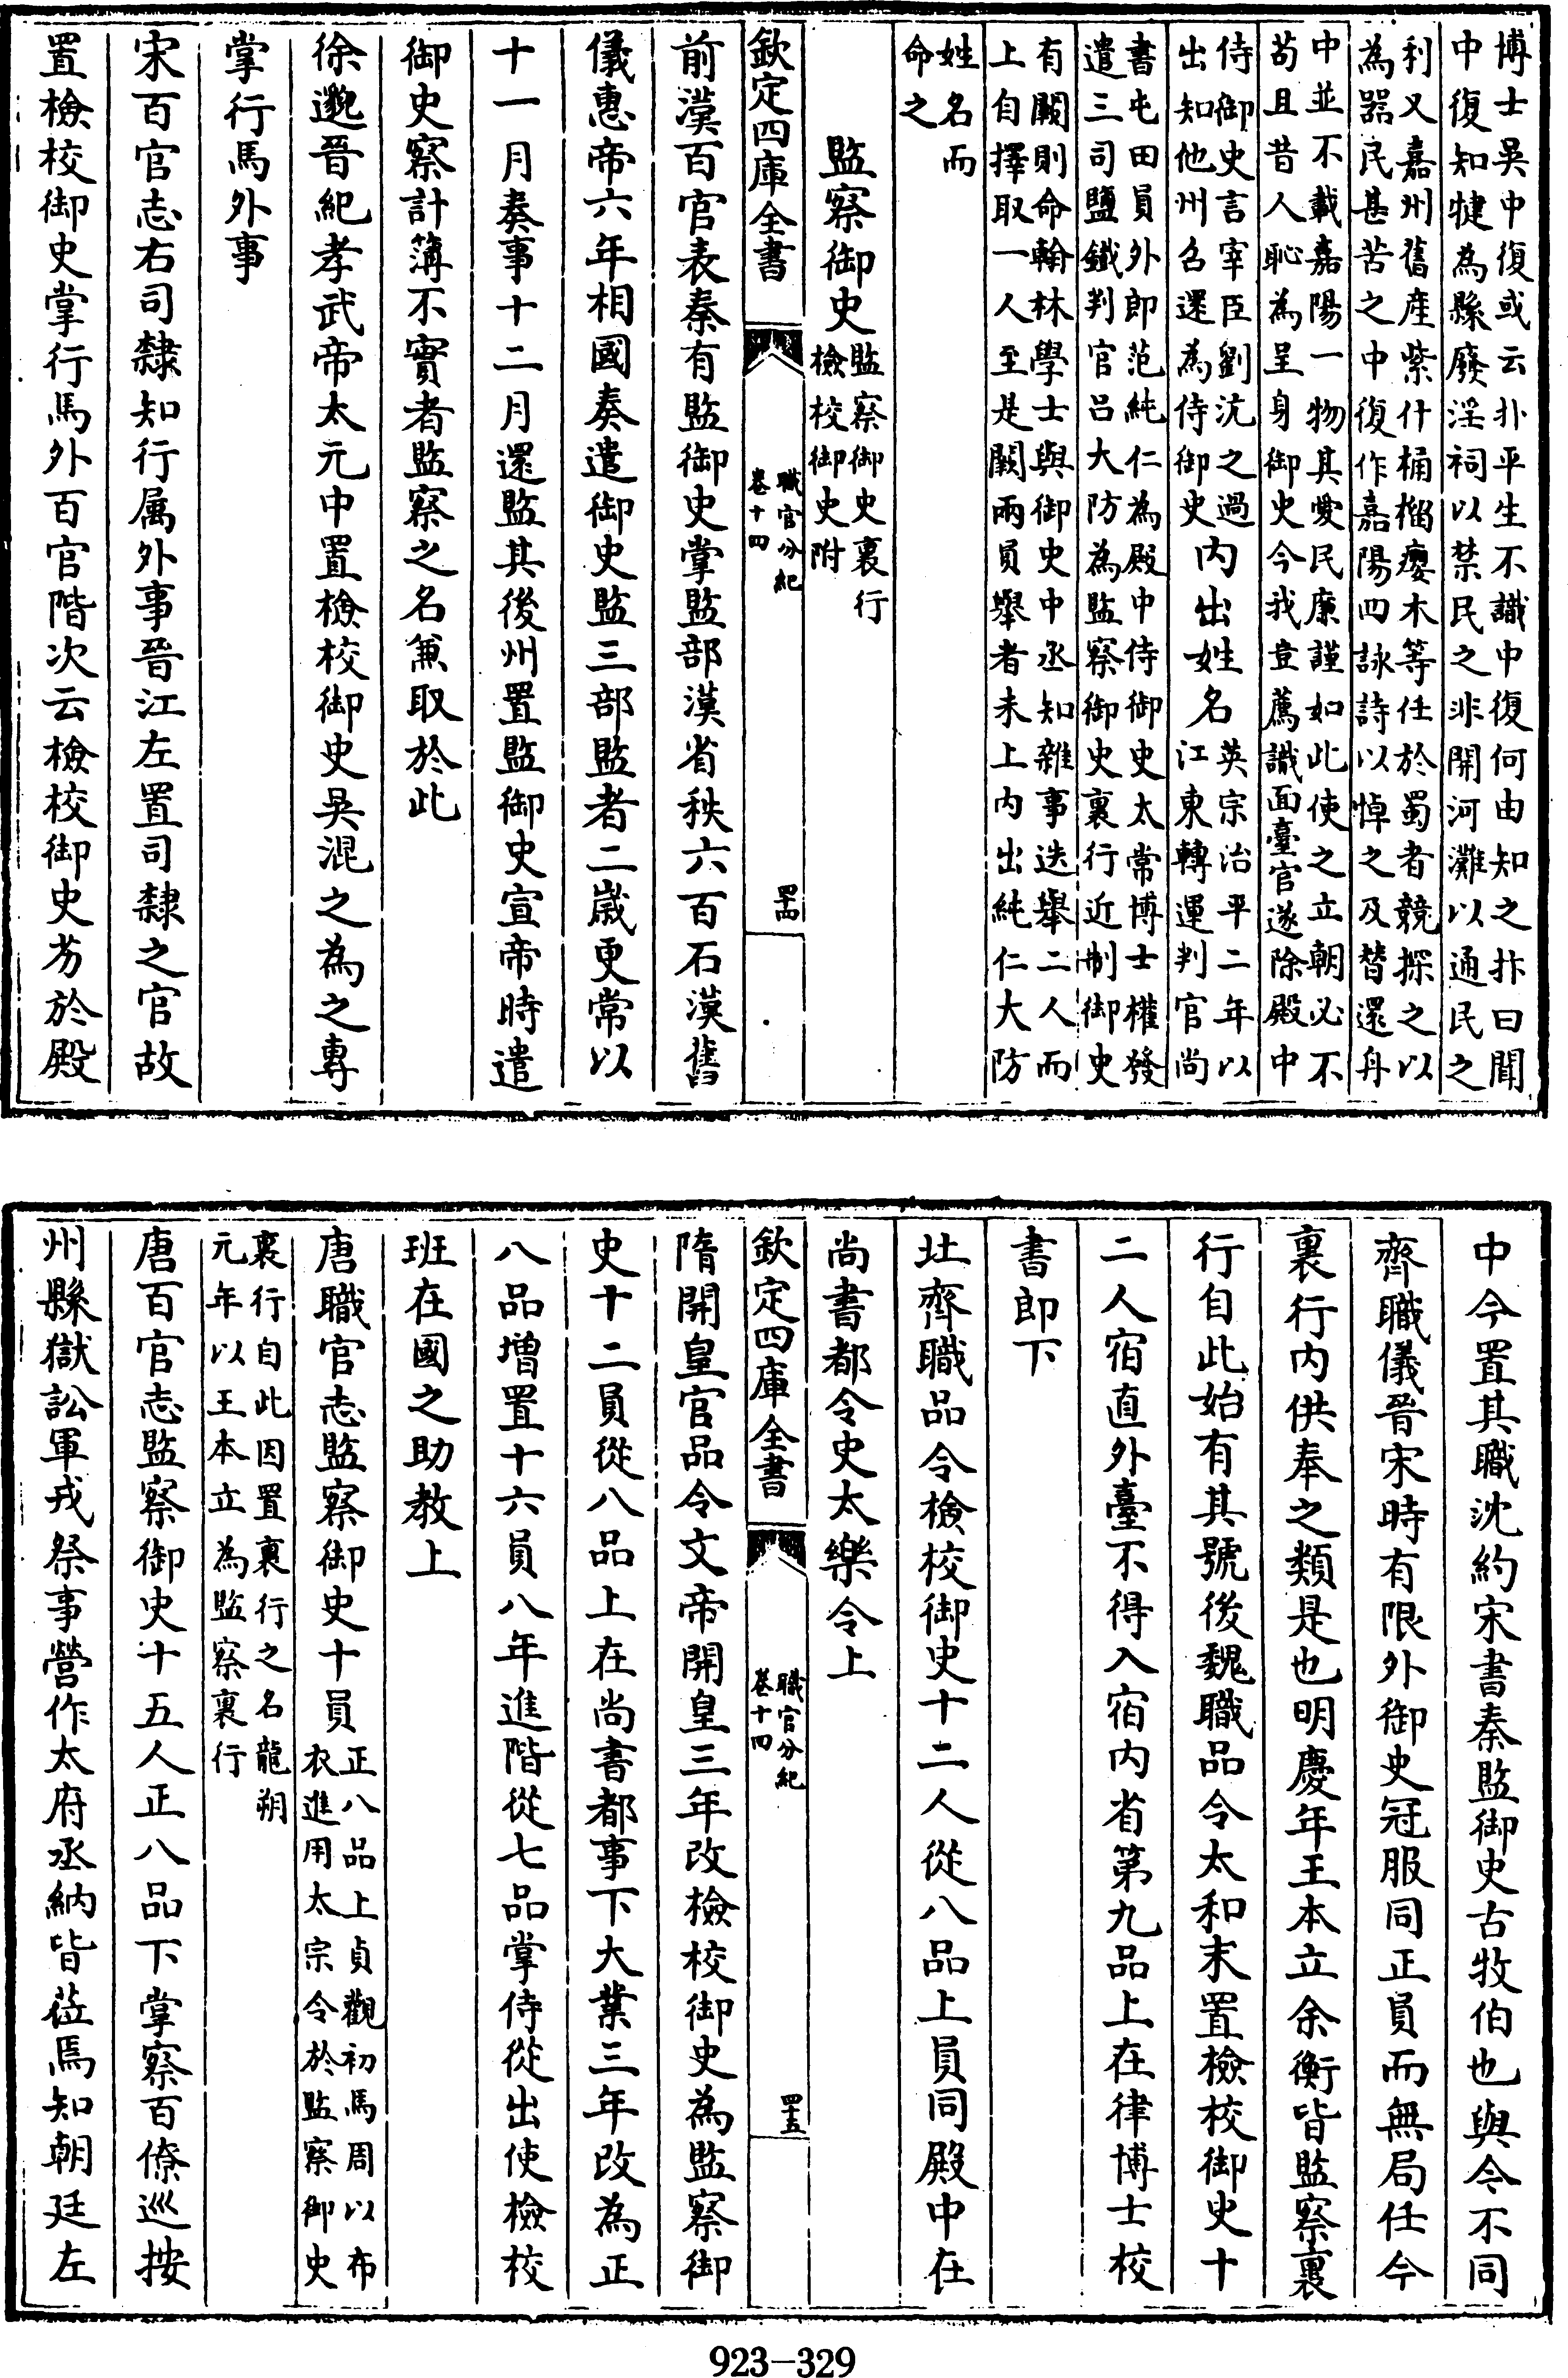 博士吳中復或云扑平生不識中復何由知之抃曰聞
中復知犍為縣廢淫祠以禁民之非開河灘以通民之
利又嘉州舊産紫什桶榴癭木等任於蜀者競探之以
為器民甚苦之中復作嘉陽四詠詩以悼之及替還舟
中並不載嘉陽一物其愛民廉謹如此使之立朝必不
苟且昔人恥為呈身御史今我豈薦識面臺官遂除殿中
侍御史言宰臣劉沆之過
出知他州召還為侍御史
内出姓名
英宗治平二年以
江東轉運判官尚
書屯田員外郎范純仁為殿中侍御史太常博士權發
遣三司鹽鐵判官吕大防為監察御史裏行近制御史
有闕則命翰林學士與御史中丞知雜事迭舉二人而
上自擇取一人至是闕兩員舉者未上内出純仁大防
姓名而
命之
監察御史
監察御史裏行
檢校御史附
欽定四庫全書
職官分紀
卷十四
前漢百官表秦有監御史掌監部漢省秩六百石漢舊
儀惠帝六年相國奏遣御史監三部監者二歲更常以
十一月奏事十二月還監其後州置監御史宣帝時遣
御史察計薄不實者監察之名兼取於此
徐邈晉紀孝武帝太元中置檢校御史吳混之為之專
掌行馬外事
宋百官志右司隸知行属外事晉江左置司隸之官故
置檢校御史掌行馬外百官階次云檢校御史芴於殿
中今置其職沈約宋書秦監御史古牧伯也與今不同
齊職儀晉宋時有限外御史冠服同正員而無局任今
裏行内供奉之類是也明慶年王本立余衡皆監察裏
行自此始有其號後魏職品令太和末置檢校御史十
二人宿直外臺不得入宿内省第九品上在律博士校
書郎下
北齊職品令檢校御史十二人從八品上員同殿中在
尚書都令史太樂令上
欽定四庫全書
職官分紀
卷十四
隋開皇官品令文帝開皇三年改檢校御史為監察御
史十二員從八品上在尚書都事下大業三年改為正
八品增置十六員八年進階從七品掌侍從出使檢校
班在國之助教上
唐職官志監察御史十員
正八品上貞觀初馬周以布
衣進用太宗令於監察御史
裏行自此因置裏行之名龍朔
元年以王本立為監察裏行
唐百官志監察御史十五人正八品下掌察百僚巡按
州縣獄訟軍戎祭事營作太府丞納皆莅焉知朝廷左
923-329